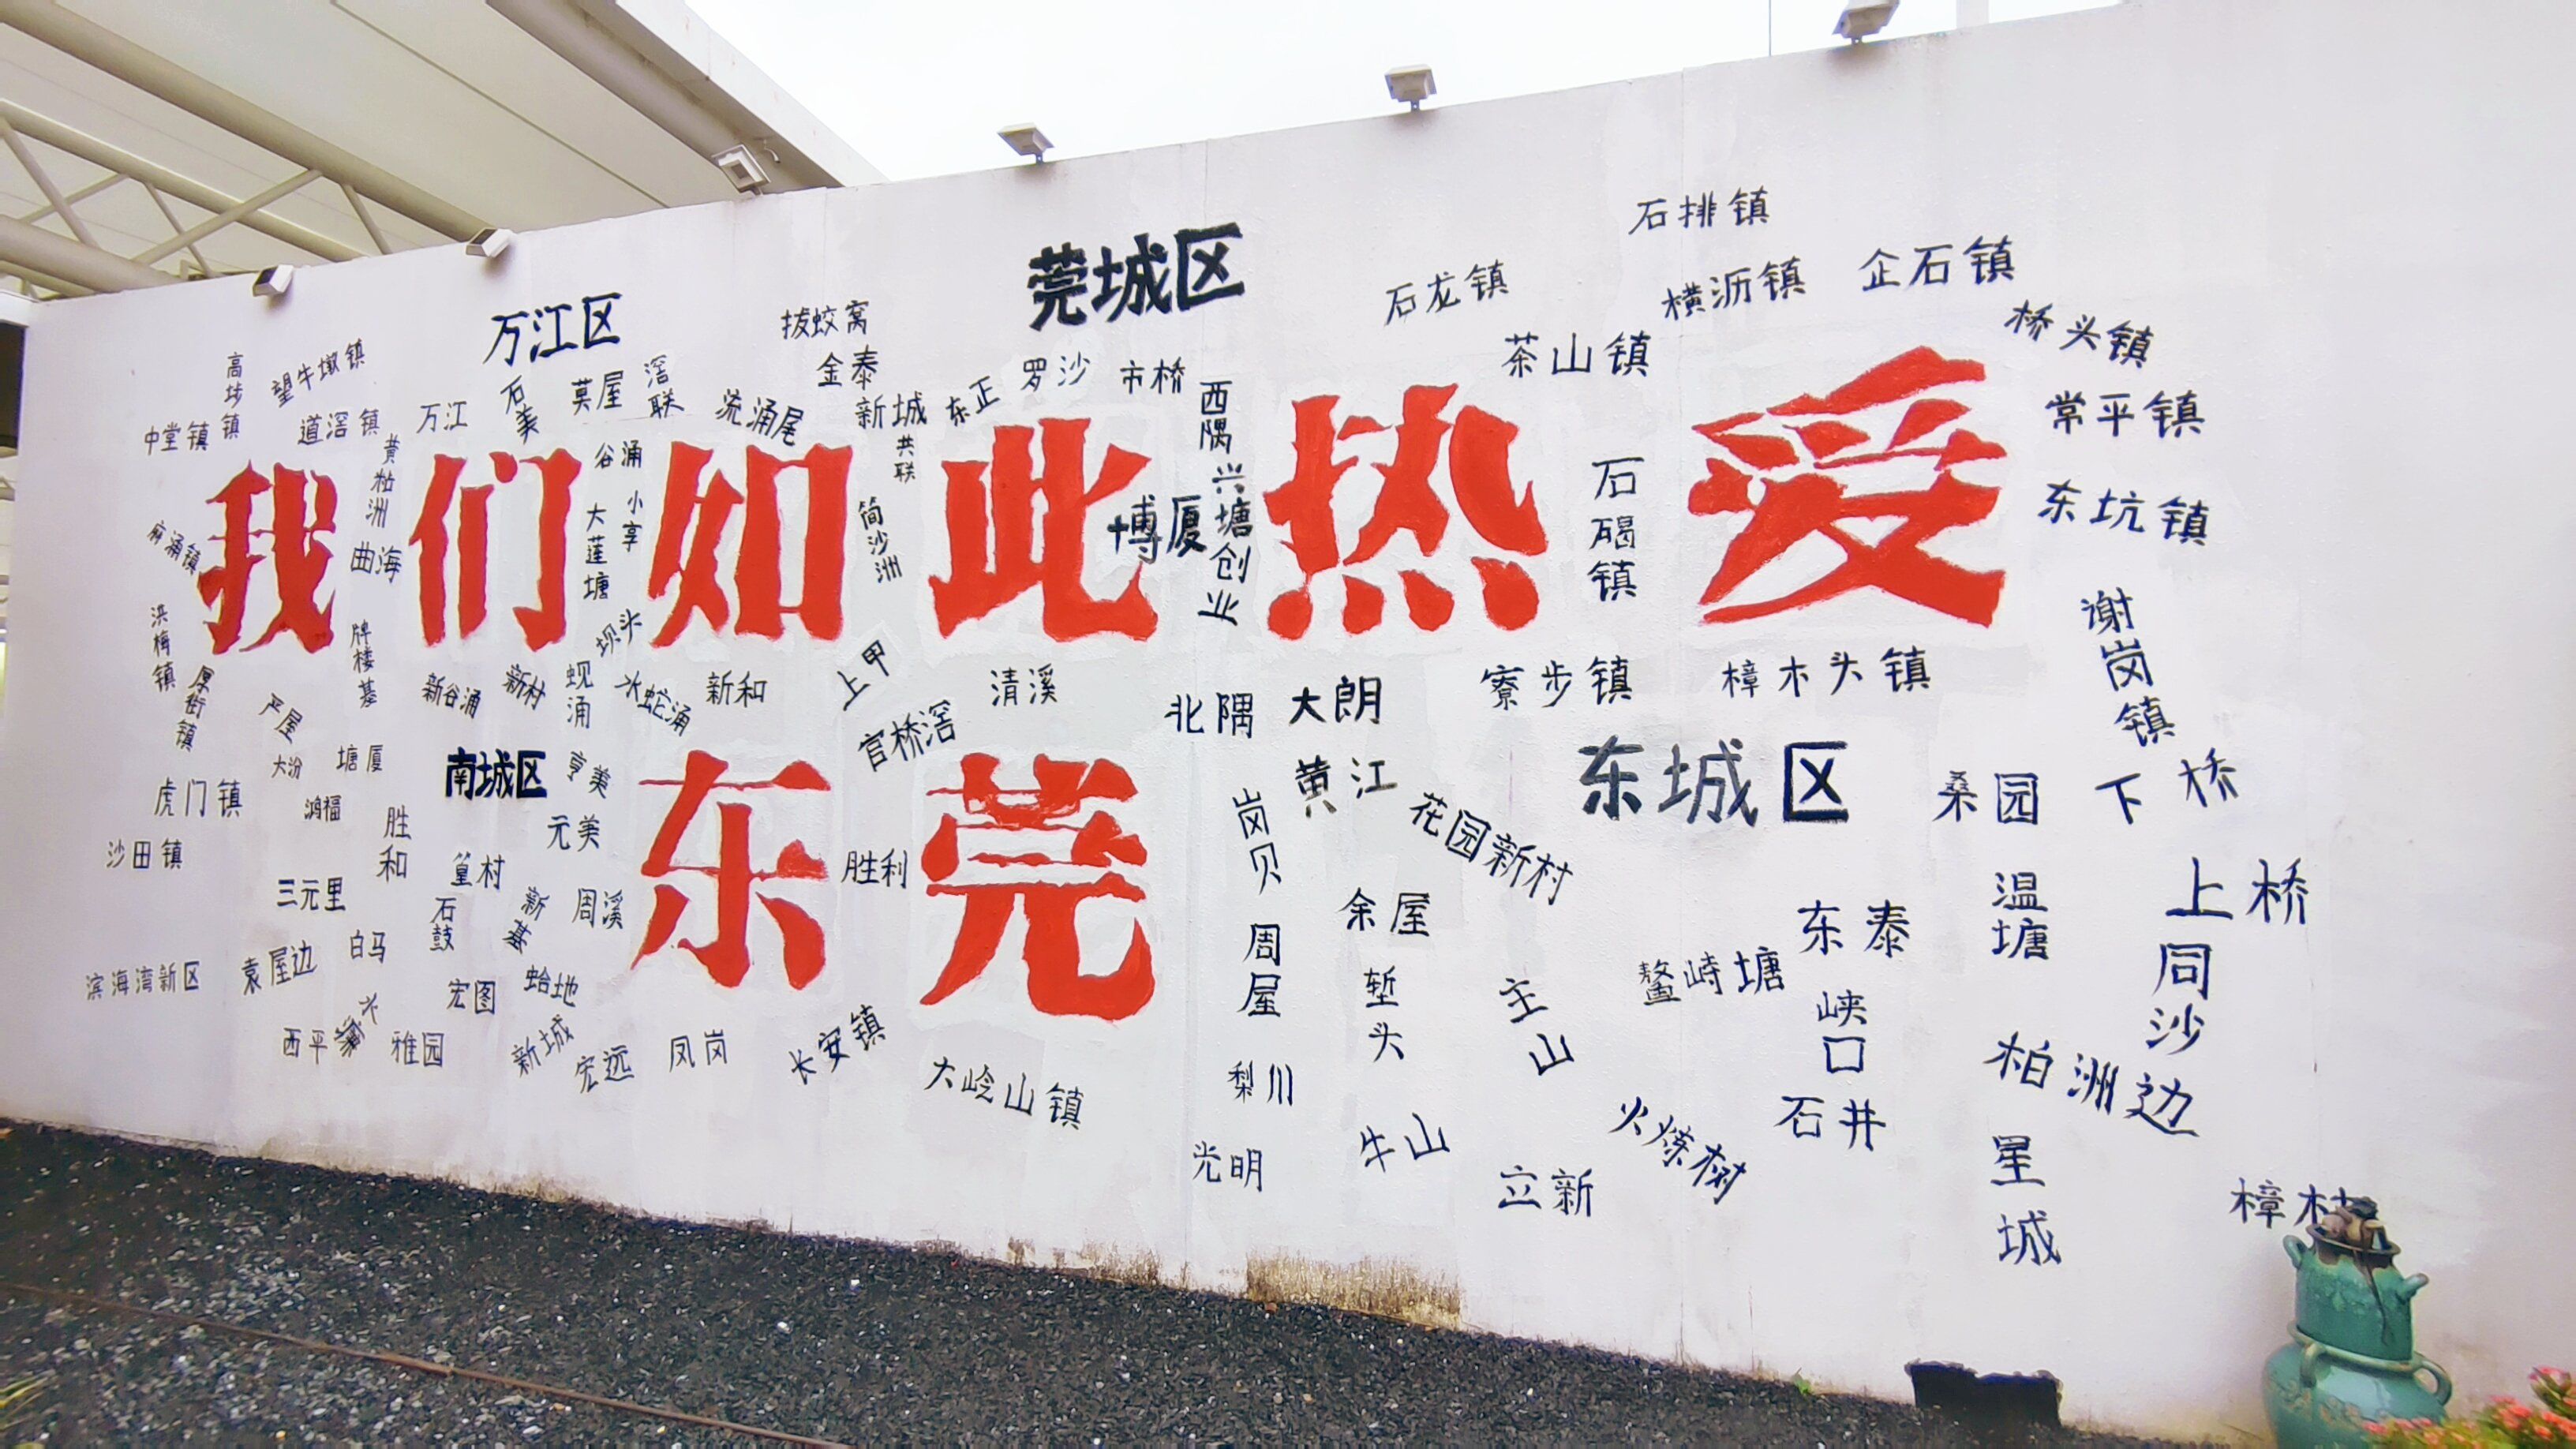 石排镇
莞城区
石龙镇
横沥镇
企石镇
万江区
拔蛟窝
茶山镇
桥头镇
高埗镇
望牛墩镇
金泰
罗沙
市桥
西隅
中堂镇
道滘镇
万江
石美
莫屋
滘联
流涌尾
新城
东正
常平镇
我们如此热爱
黄粘洲
谷涌
共联
兴塘
石碣镇
东坑镇
麻涌镇
曲海
大莲塘
小享
简沙洲
博厦
创业
洪梅镇
牌楼基
坝头
谢岗镇
厚街镇
严屋
新谷涌
新村
蚬涌
水蛇涌
新和
上甲
清溪
北隅
大朗
寮步镇
樟木头镇
官桥滘
大汾
塘厦
南城区
亨美
黄江
东城区
桑园
下桥
虎门镇
鸿福
胜和
元美
东莞
岗贝
花园新村
沙田镇
三元里
篁村
胜利
上桥
石鼓
新基
周溪
余屋
东泰
温塘
滨海湾新区
袁屋边
白马
宏图
蛤地
周屋
堑头
主山
鳌峙塘
同沙
西平
雅园
新城
宏远
凤岗
长安镇
大岭山镇
梨川
峡口
柏洲边
光明
牛山
立新
火炼树
石井
星城
樟村